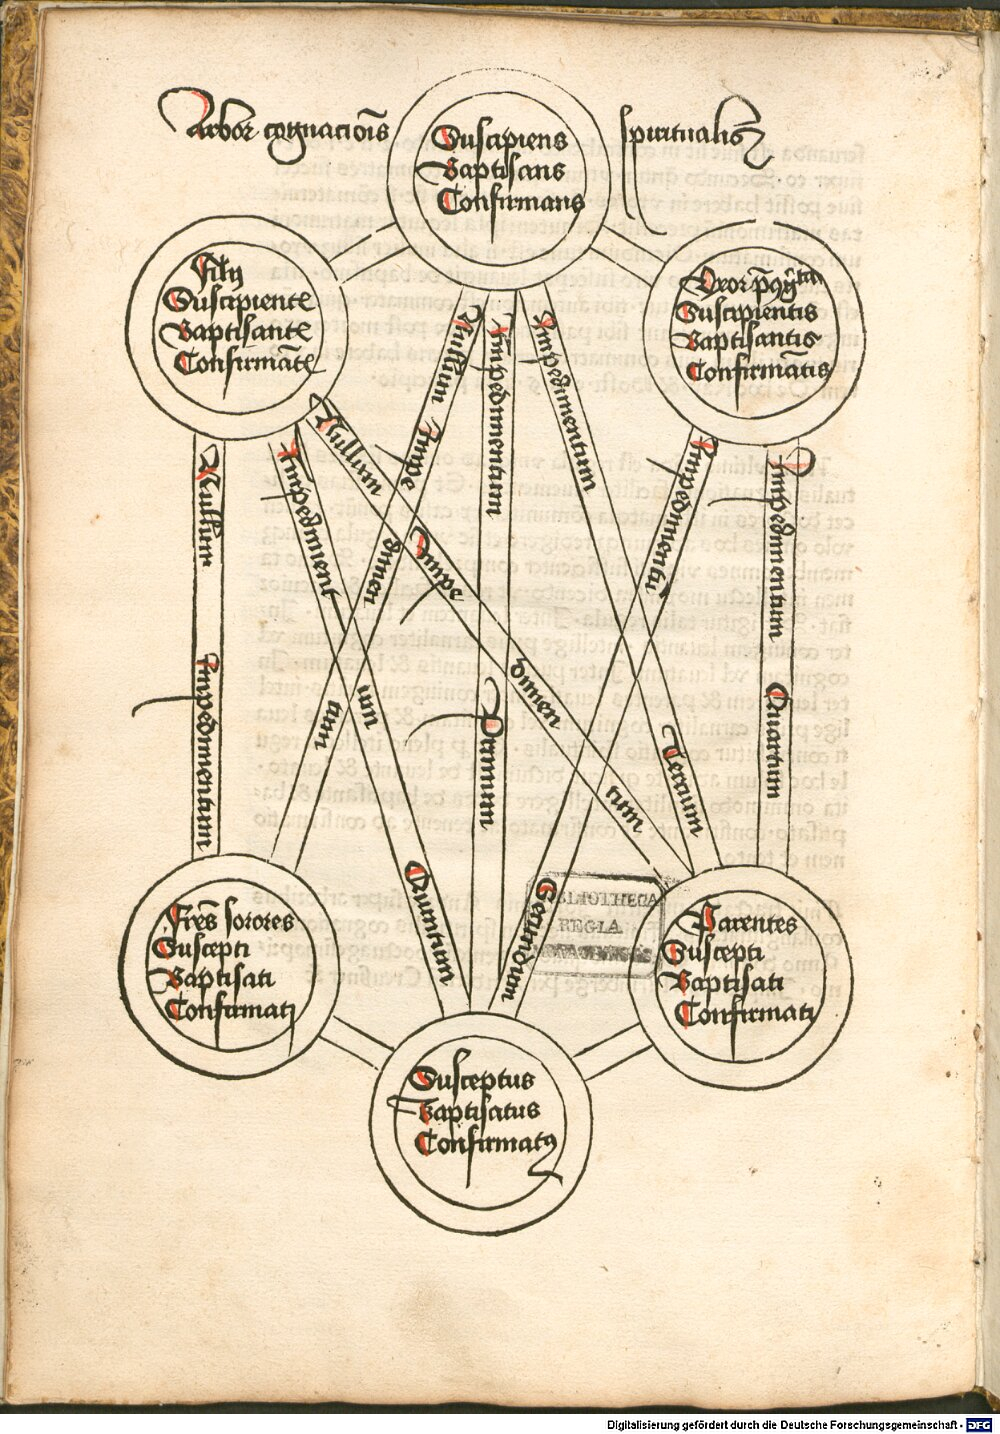 Arbor cognaciōis spiritualis
Suscipiens
Baptisans
Confirmans
Filij
Suscipient
Baptisant
Confirmāt
Uxor
Suscipientis
Baptisantis
Confirmātis
Nullum Impedimentum
Impediment um Quintum
Nullum Impe dimen tum
Nullum Impe dimen tum
Impedimentum Primum
Impedimentum Tercium
Impedimentū Secundum
Impedimentum Quartum
Frēs sorores
Suscepti
Baptisati
Confirmati
Parentes
Suscepti
Baptisati
Confirmati
Susceptus
Baptisatus
Confirmatꝰ
BIBLIOTHECA
REGIA
MONACENSIS
Digitalisierung gefördert durch die Deutsche Forschungsgemeinschaft - DFG